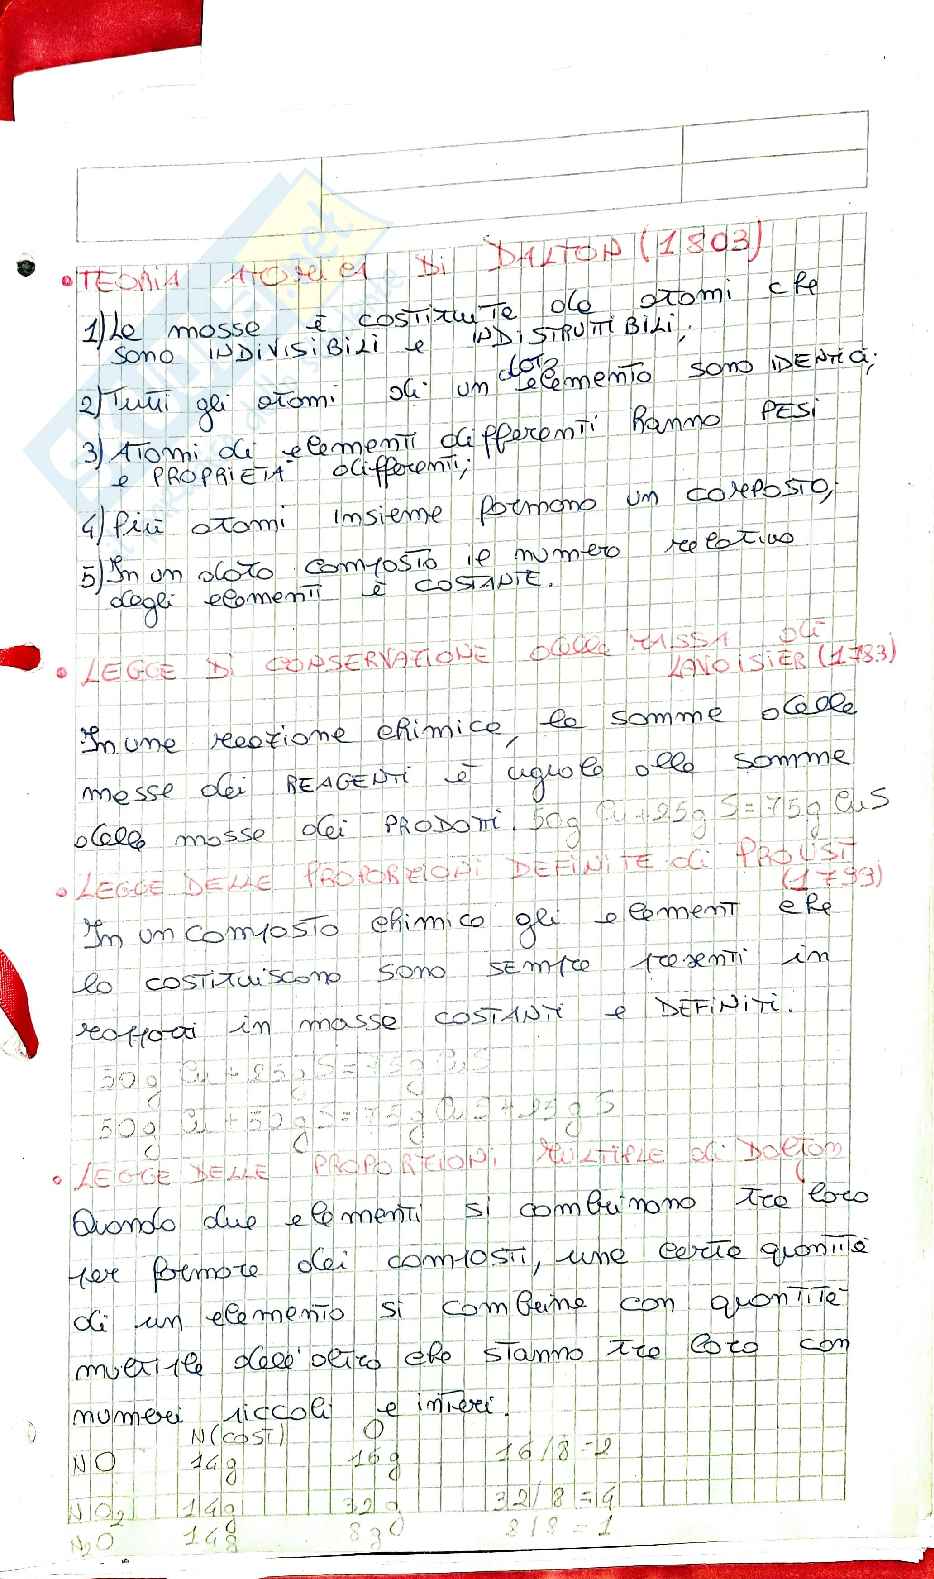 • TEORIA ATOMICA Di DALTON (1803)
1) La massa è costituita da atomi che
sono INDIVISIBILI e INDISTRUTTIBILI;
2) Tutti gli atomi di un dato elemento sono IDENTICI;
3) Atomi di elementi differenti hanno PESI
e PROPRIETÀ differenti;
4) Più atomi insieme formano un composto;
5) In un dato composto il numero relativo
degli elementi è COSTANTE.
• LEGGE Di CONSERVAZIONE della MASSA di
LAVOISIER (1783)
In una reazione chimica, la somma delle
masse dei REAGENTI è uguale alla somma
delle masse dei PRODOTTI. 50g Cu + 25g S = 75g CuS
• LEGGE DELLE PROPORZIONI DEFINITE di PROUST
(1799)
In un composto chimico gli elementi che
lo costituiscono sono sempre presenti in
rapporti in masse COSTANTI e DEFINITI.
50g Cu + 25g S = 75g CuS
50g Cu + 50g S = 75g CuS + 25g S
• LEGGE DELLE PROPORZIONI MULTIPLE di Dalton
Quando due elementi si combinano tra loro
per formare dei composti, una certa quantità
di un elemento si combina con quantità
multiple dell'altro che stanno tra loro con
numeri piccoli e interi.
N(cost) O
NO 14g 16g 16/8=2
NO2 14g 32g 32/8=4
N2O 14g 8g 8/8=1